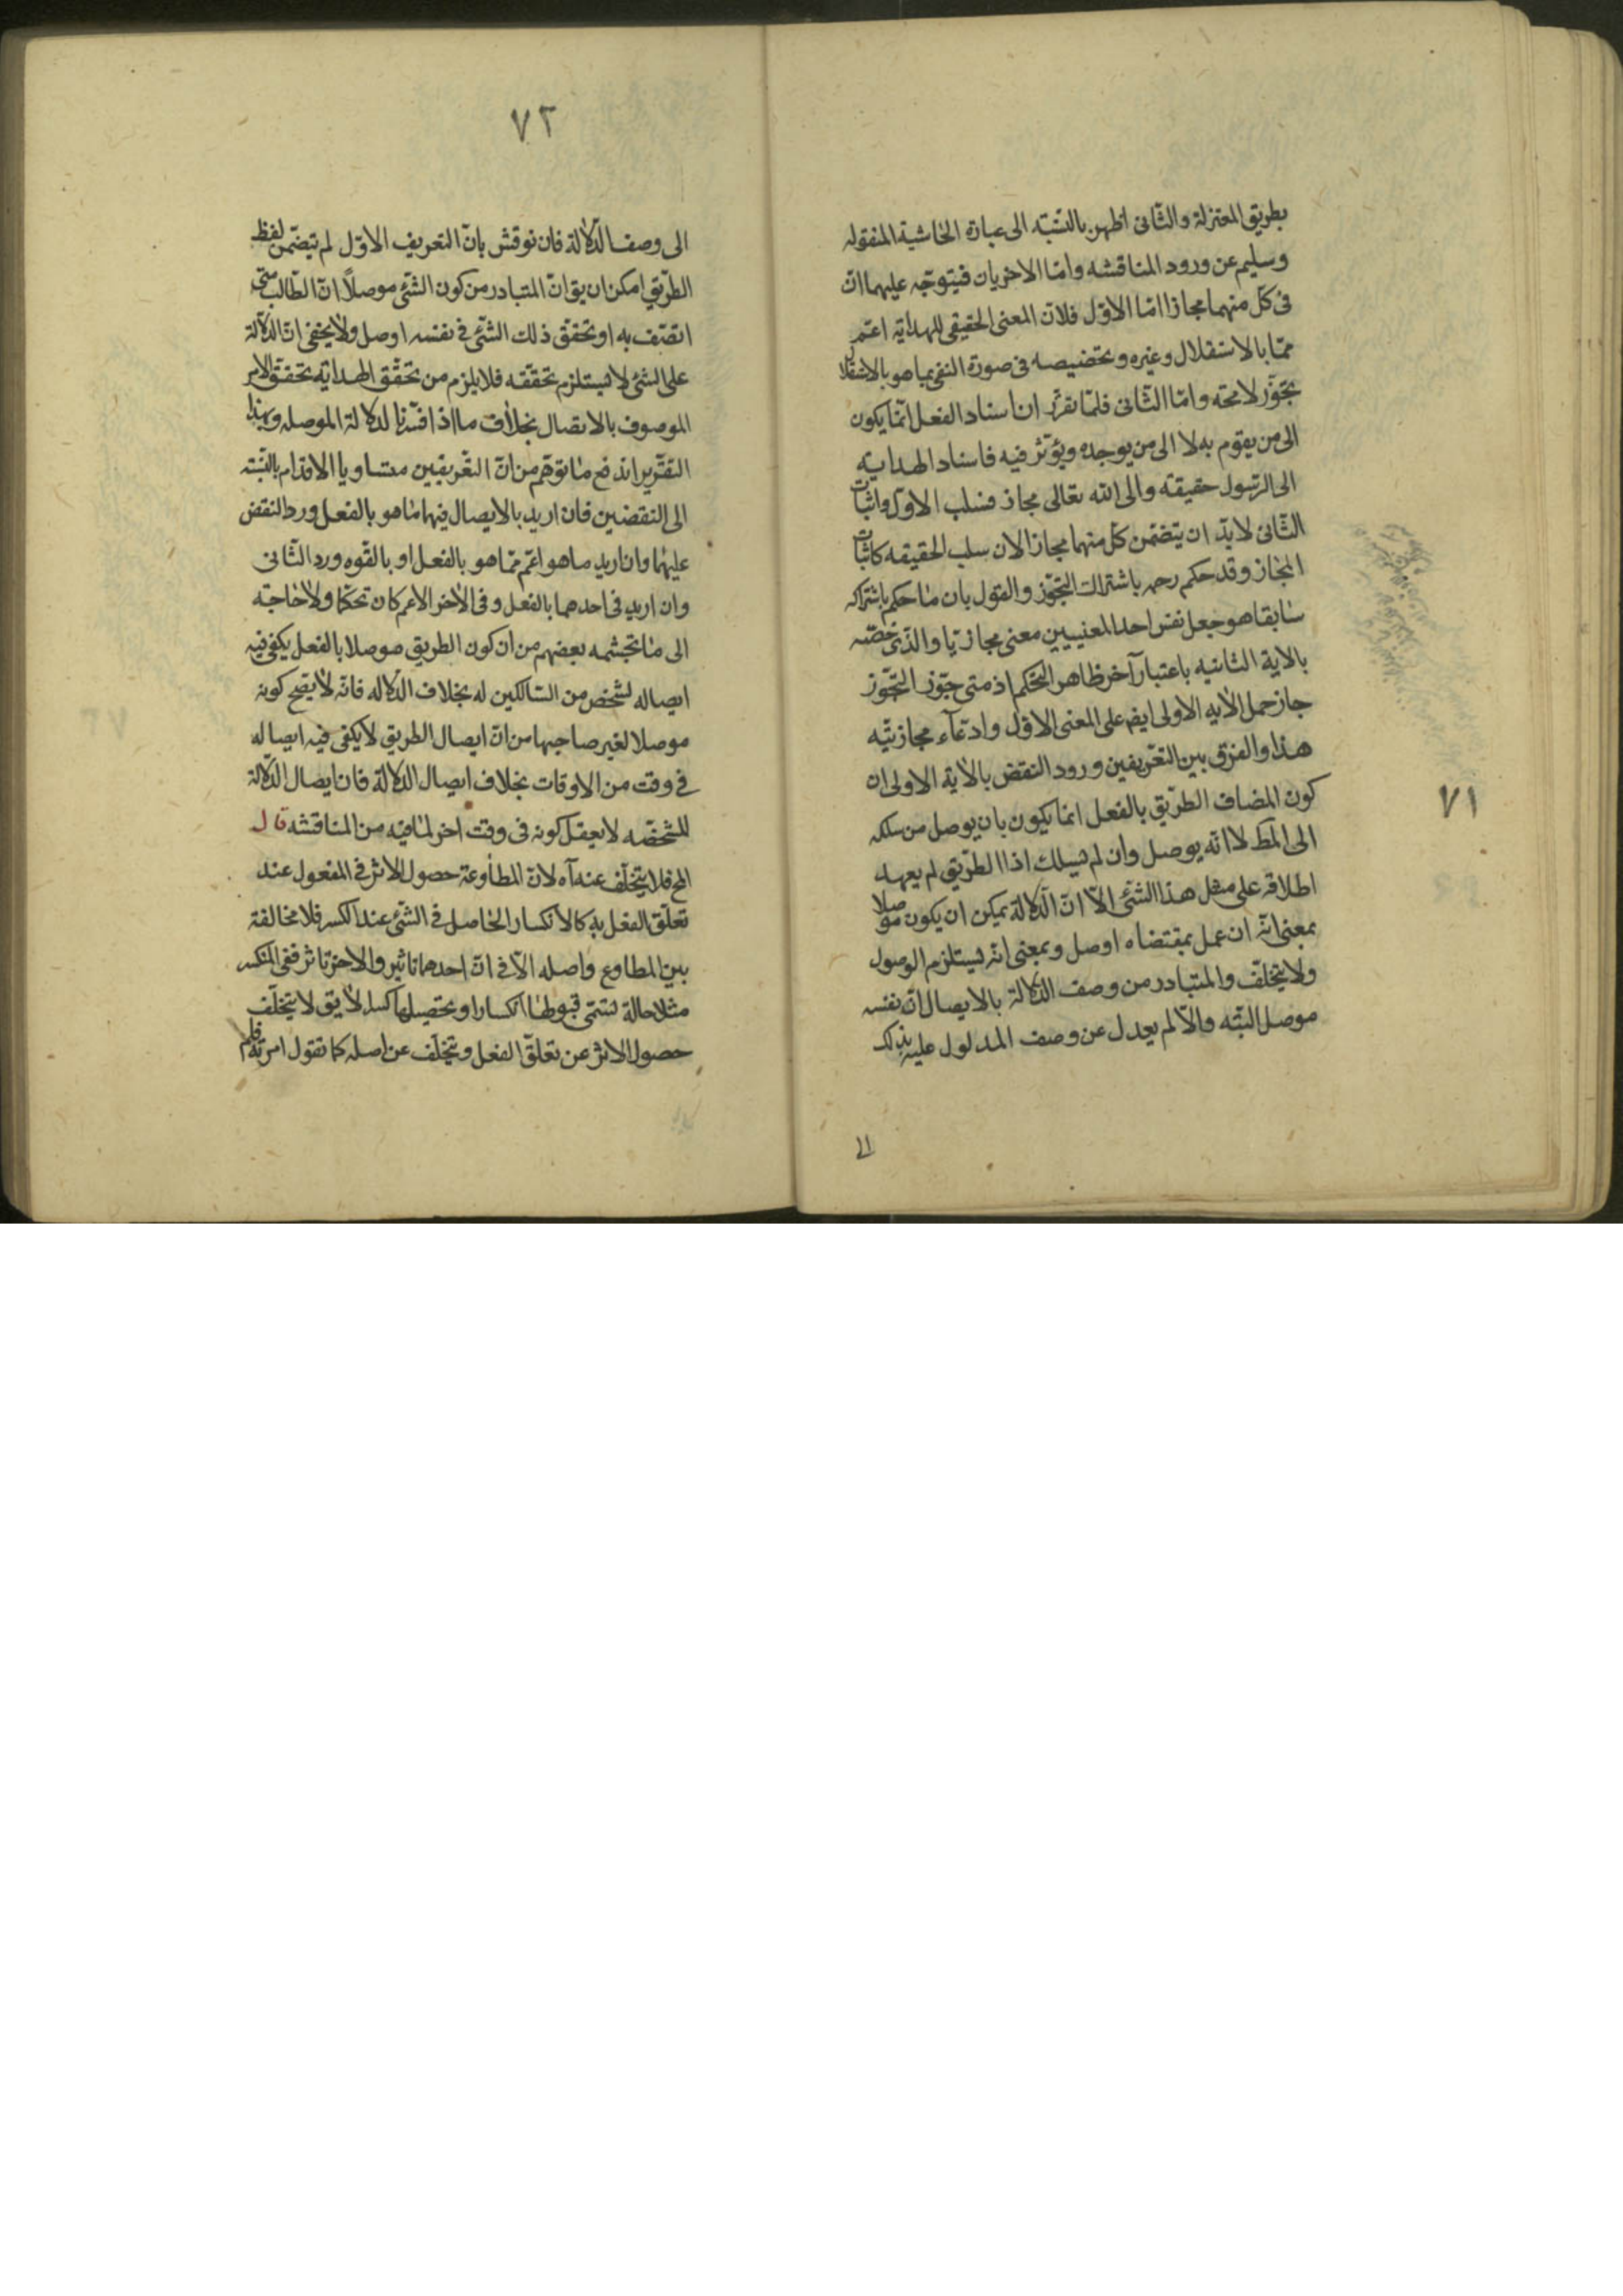 بطريق المعتزلة والثّانى اظهر بالنّسبة الى عبارة الحٰاشية المنقوله
وسليم عن ورود المناقشه وامّا الاخريان فيتوجّه عليهما انّ
فى كلّ منهما مجازا امّا الاوّل فلانّ المعنى الحقيقى للهداية اعمّ
ممّا بالاستقلال وغيره وتخصيصه فى صورة النفى بما هو بالاستقلال
تجوّز لا محة وامّا الثّانى فلمّا تقرّر ان اسناد الفعل انّما يكون
الى من يقوم به لا الى من يوجده ويؤثر فيه فاسناد الهداية
الى الرّسول حقيقة والى الله تعالى مجاز فسلب الاوّل واثبات
الثّانى لا بدّ ان يتضمّن كلّ منهما مجازا لان سلب الحقيقه كاثبات
المجٰاز وقد حكم رحمه باشتراك التجوّز والقول بان مٰا حكم باشتراكه
سٰابقا هو جعل نفس احد المعنيين معنى مجازيّا والذّى خصّه
بالاية الثانيه باعتبار آخر ظاهر التحكّم اذ متى جوّز التجّوز
جاز حمل الاٰيه الاولى ايضا على المعنى الاوّل وادّعآء مجازيّته
هذا والفرق بين التعّريفين ورود النقض بالاٰية الاولى ان
كون المضاف الطرّيق بالفعل انما يكون بان يوصل من سلكه
الى المط لا انّه يوصل وان لم يسلك اذ الطرّيق لم يعهد
اطلاقه على مثل هذا الشّئ الاّ انّ الدّلالة يمكن ان يكون موصلا
بمعنى انّه ان عمل بمقتضاه اوصل وبمعنى انه يستلزم الوصول
ولا يتخلّف والمتبادر من وصف الدّلالة بالايصال انّ نفسه
موصل البتّه والاّ لم يعدل عن وصف المدلول عليه بذلك
الى
٧١
٧٢
الى وصف الدّلالة فان نوقش بانّ التعريف الاوّل لم يتضمّن لفظ
الطرّيق امكن ان يق انّ المتبادر من كون الشّئ موصلاً انّ الطّالب متى
اتصّف به او تحقّق ذلك الشّئ فى نفسه اوصل ولاٰ يخفى انّ الدّلالة
على الشئ لا يستلزم تحقّقه فلا يلزم من تحقّق الهداية تحقق الامر
الموصوف بالاتصال بخلاف ما اذا فسّرنا لدلالة الموصله وبهذا
التقّرير اندفع مٰا توهّم من انّ التعّريفين متساويا الاقدام بالنّسبته
الى النقضين فان اريد بالايصال فيهما مٰا هو بالفعل ورد النقض
عليهمٰا وان اريد ما هو اعّم ممّا هو بالفعل او بالقّوه ورد الثّانى
وان اريد فى احدهما بالفعل وفى الاٰخر الاعم كان تحكّما ولاٰ حٰاجة
الى مٰا تجشّمه بعضهم من ان كون الطريق موصلا بالفعل يكفى فيه
ايصاله لشخص من السّالكين له بخلاف الدّلاله فانّه لاٰ يصّح كونه
موصلا لغير صاحبها من انّ ايصال الطريق لاٰ يكفى فيه ايصاله
فى وقت من الاوقات بخلاف ايصال الدّلالة فان ايصال الدّلالة
للشّخصّه لا يعقل كونه فى وقت اخر لمٰا فيه من المناقشه قال
المح فلا يتخلّف عنه آه لانّ المطٰاوعة حصول الاثر فى المفعول عند
تعلّق الفعل به كالانكسار الحٰاصل فى الشّئ عند الكسر فلا مخالفة
بين المطاوع واصله الاّ فى انّ احدهما تاثير والاخر تاثر ففى المنكسر
مثلا حالة تسّمى قبولهٰا انكسارا وتحصيلها كسرا لاٰ يق لا يتخلّف
حصول الاثر عن تعلّق الفعل ويتخلّف عن اصله كما تقول امرته فلم